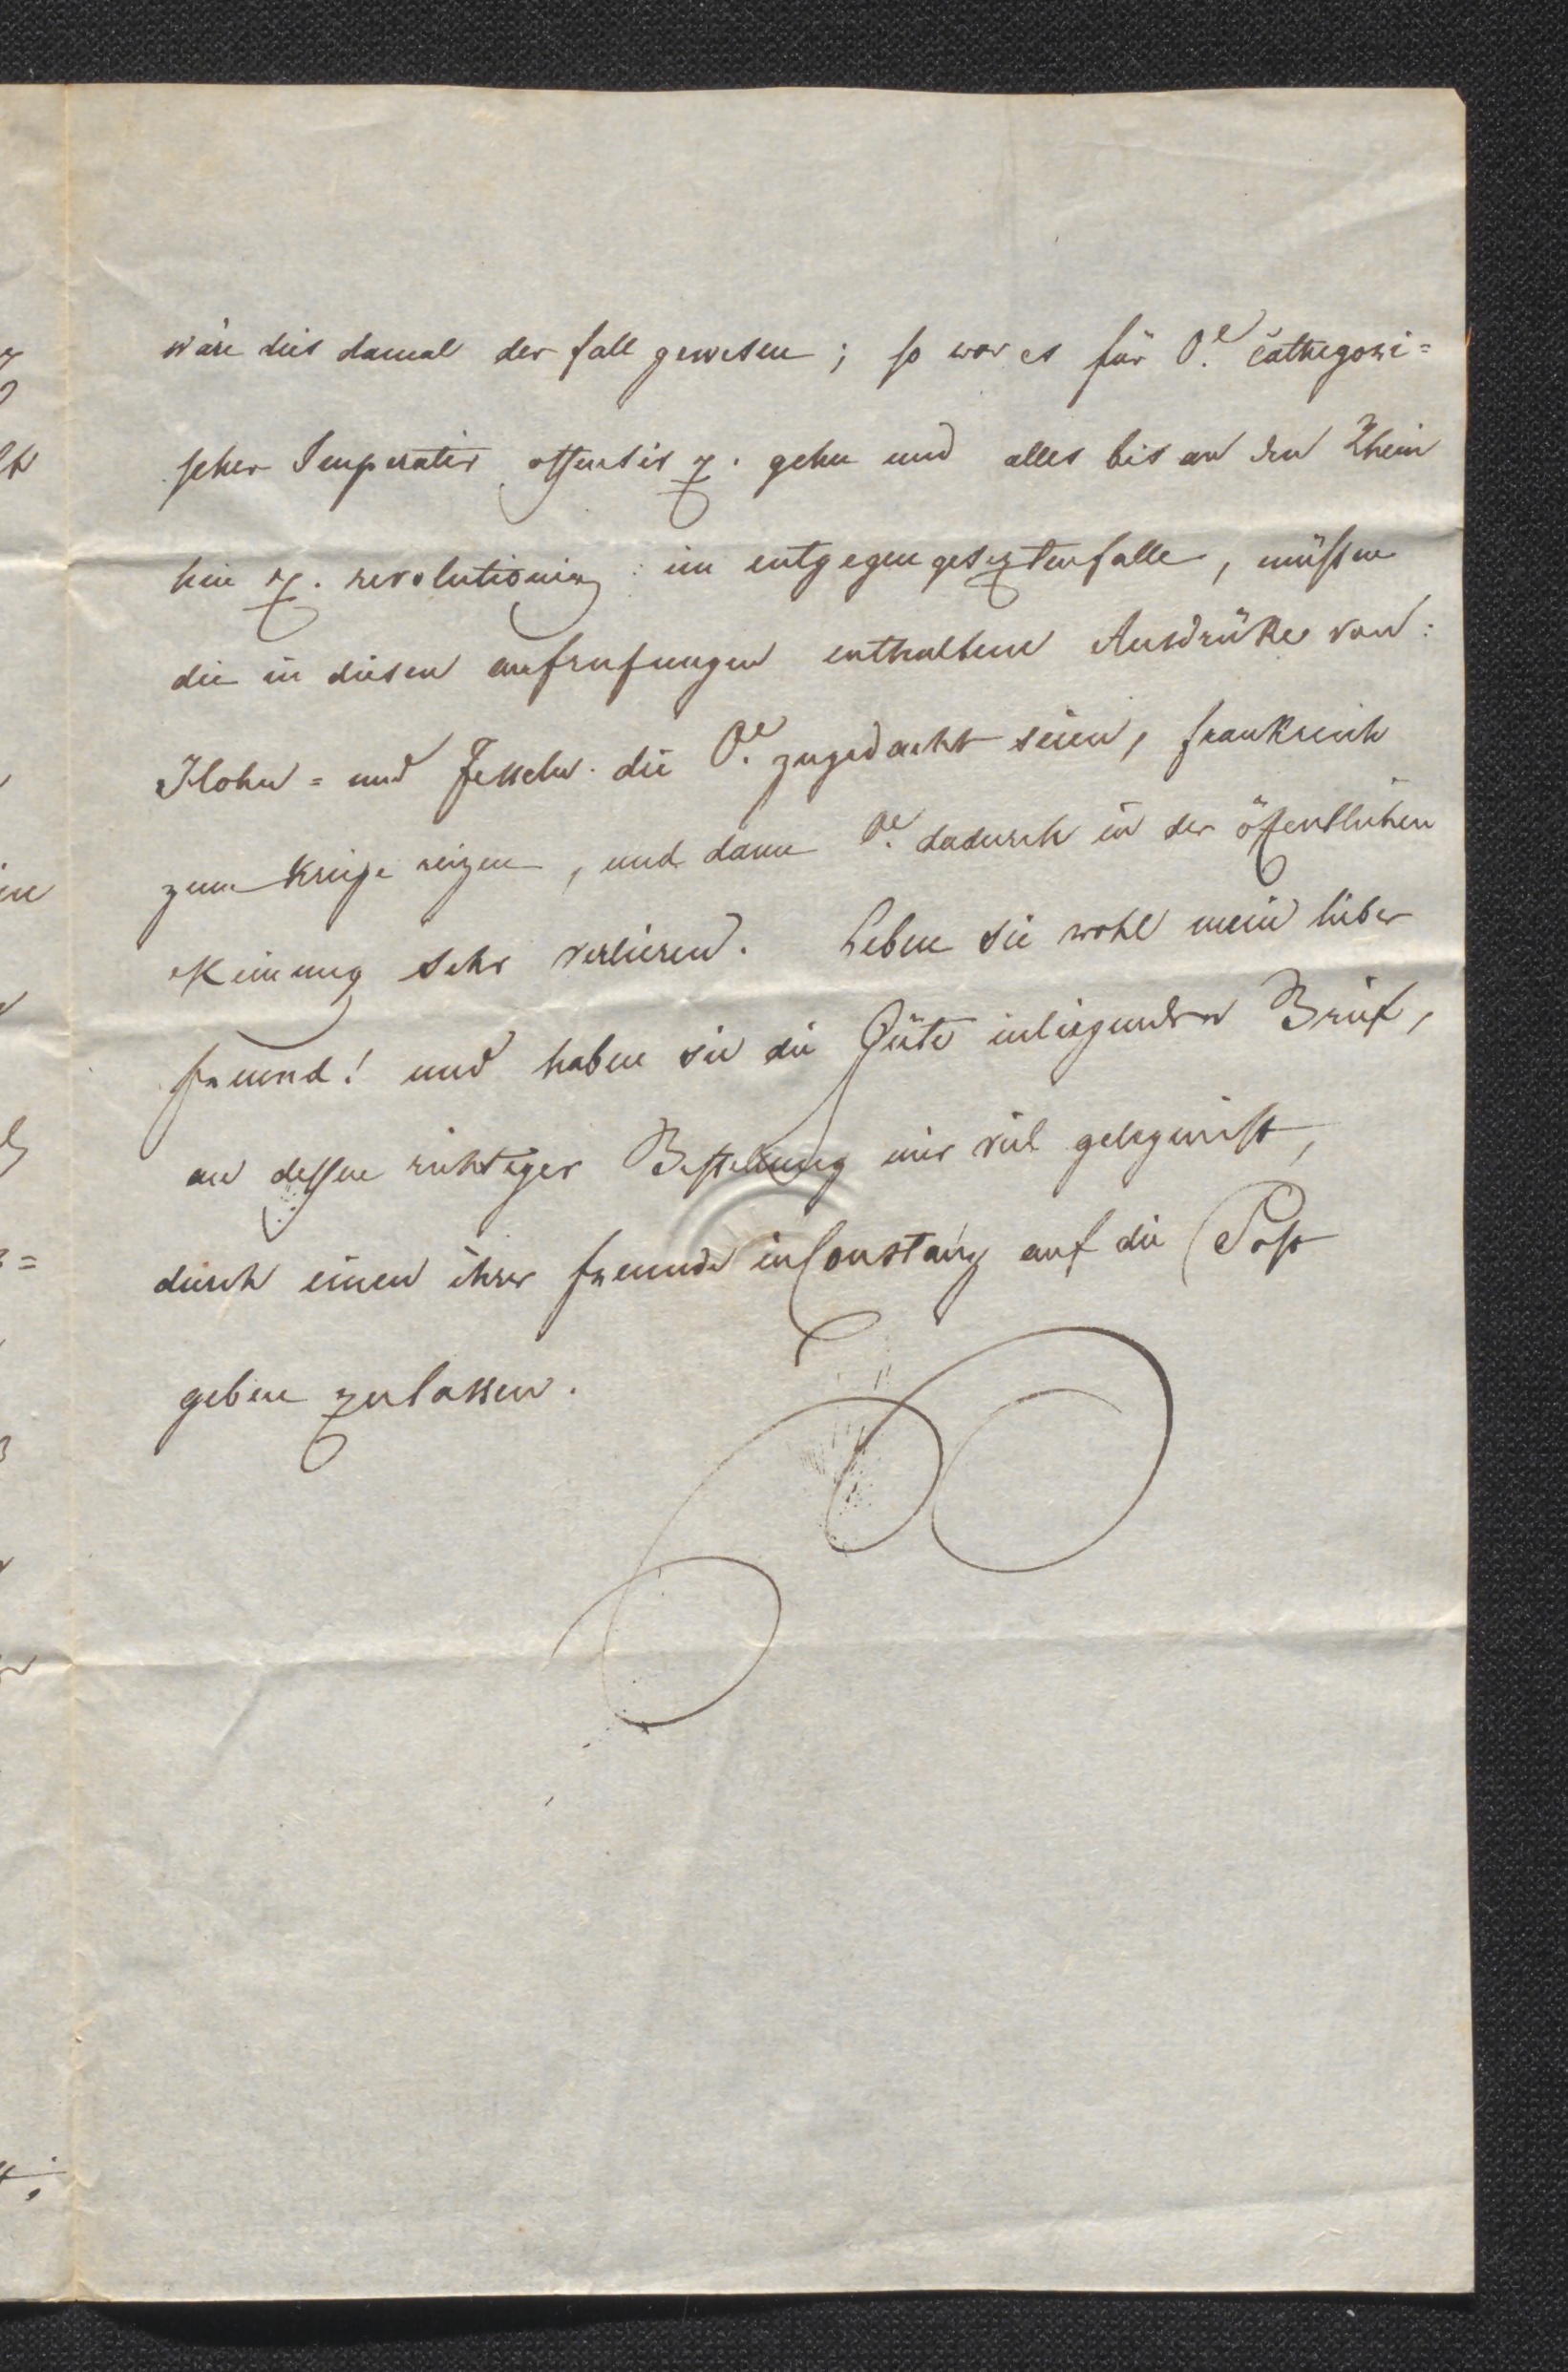 wäre dies damal der fall gewesen ; so war es für Oe. cathegori=
scher Imperativ offensiv z. gehn und alles bis an den Rhein
hin z. revolutionirn : im entgegengesezten falle , müßen
die in diesen aufrufungen enthaltene Ausdrüke von :
Hohn = und Fesseln . die Oe. zugedacht seien , frankreich
zum kriege reizen , und dann Oe. dadurch in der öffentlichen
Meinung sehr verlieren . Leben sie wohl mein lieber
freund ! und haben sie die Güte inliegenden Brief ,
an deßen richtiger Bestellung mir viel gelegen ist ,
durch einen ihrer freunde in Constanz auf die Post
geben zu lassen .